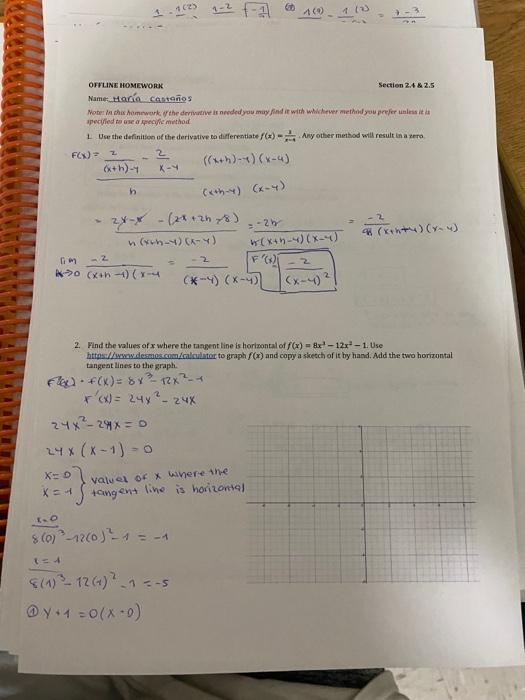 1-2
OFFLINE HOMEWORK Section 2.4 & 2.5
Name: María Castaños
Note: In this homework, if the derivative is needed you may find it with whichever method you prefer unless it is
specified to use a specific method.
1. Use the definition of the derivative to differentiate f(x) = 2/x−4. Any other method will result in a zero.
F(x) = 2/(x+h)-4 - 2/x-4 ((x+h)-4)(x-4)
h (x+h-4) (x-4)
= 2x-8 - (2x+2h-8) / h(x+h-4)(x-4) = -2h / h(x+h-4)(x-4) = -2 / (x+h-4)(x-4)
lim h→0 -2 / (x+h-4)(x-4 = -2 / (x-4)(x-4) F'(x) -2 / (x-4)²
2. Find the values of x where the tangent line is horizontal of f(x) = 8x³ − 12x² − 1. Use
https://www.desmos.com/calculator to graph f(x) and copy a sketch of it by hand. Add the two horizontal
tangent lines to the graph.
f(x) = 8x³-12x²-1
F'(x) = 24x²-24x
24x²-24x = 0
24x(x-1) = 0
x=0 } values of x where the
x=1 } tangent line is horizontal
x=0
8(0)³-12(0)²-1 = -1
x=1
8(1)³-12(1)²-1 = -5
① y+1 = 0(x-0)